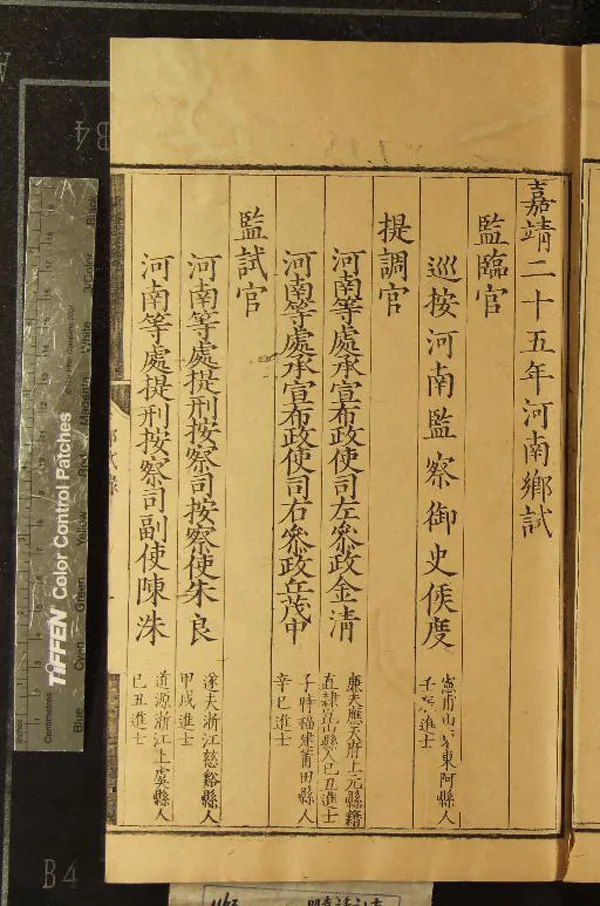 嘉靖二十五年河南鄉試
監臨官
巡按河南監察御史侯度
憲甫山東阿縣人
壬進士
提調官
河南等處承宣布政使司左叅政金清
廉夫應天府上元縣籍
直隸崑山縣人己丑進士
河南等處承宣布政使司右叅政丘茂中
子時福建莆田縣人
辛巳進士
監試官
河南等處提刑按察司按察使朱良
遂夫浙江慈谿縣人
甲戌進士
河南等處提刑按察司副使陳洙
道源浙江上虞縣人
己丑進士
TIFFEN Color Control Patches
Inches
Centimetres
Blue
Cyan
Green
Yellow
Red
Magenta
White
3/Color
Black
B4
B4